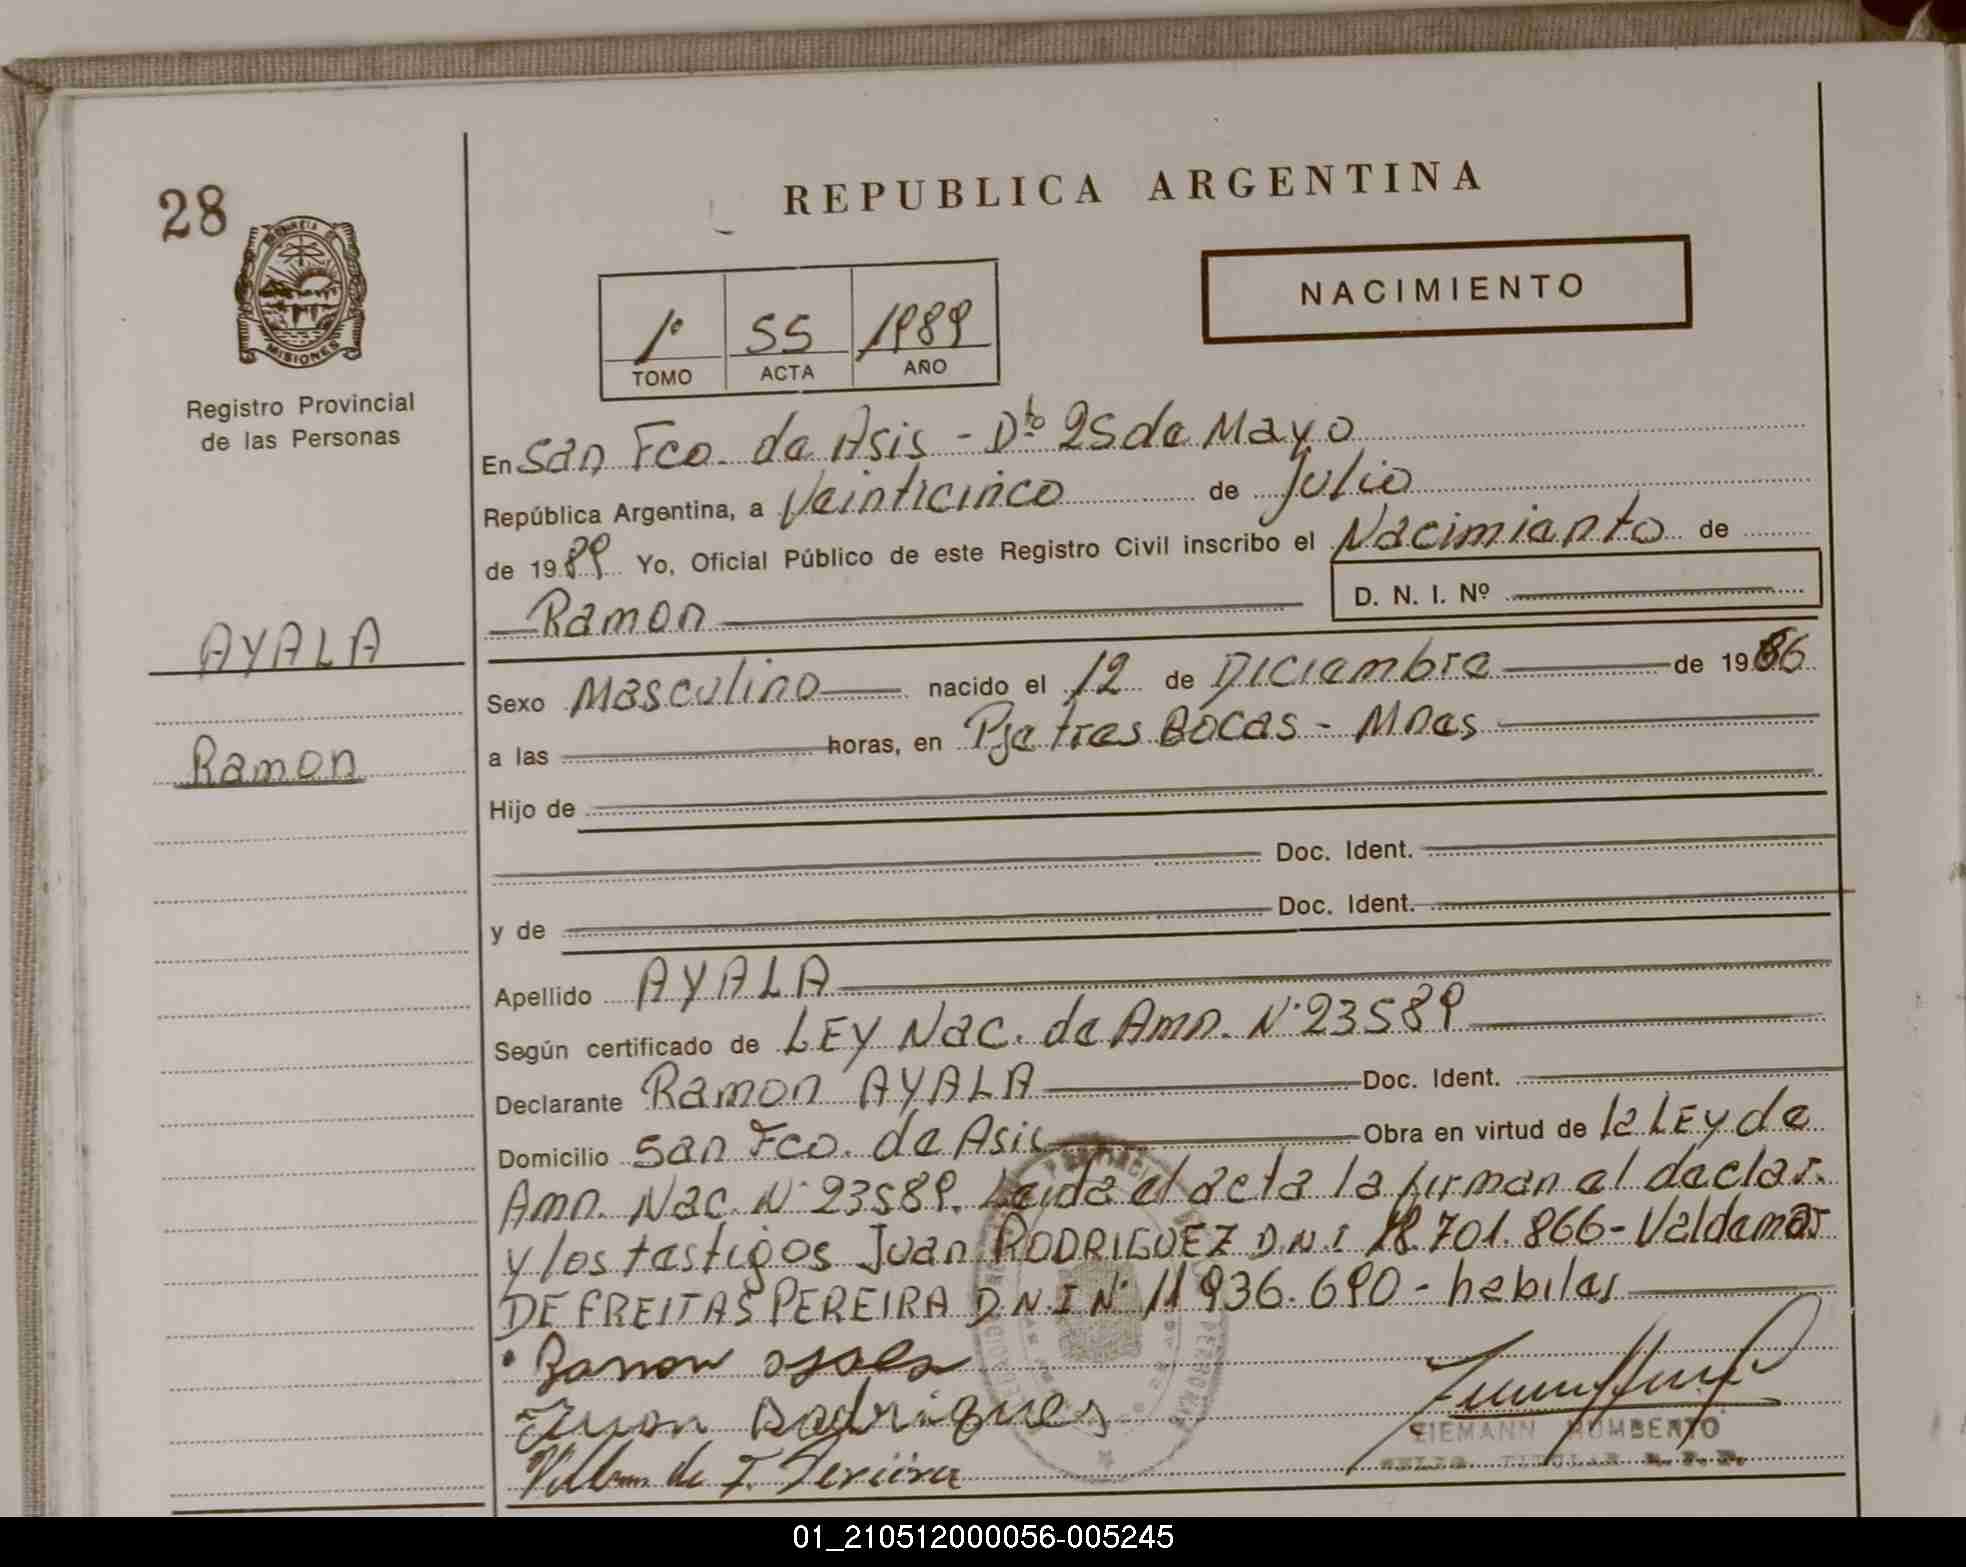 28
REPUBLICA ARGENTINA
NACIMIENTO
1º 55 1989
TOMO ACTA AÑO
MISIONES
Registro Provincial
de las Personas
En San Fco. de Asis - Dto 25 de Mayo
República Argentina, a Veinticinco de Julio
de 1989 Yo, Oficial Público de este Registro Civil inscribo el Nacimiento de
Ramon D. N. I. Nº
AYALA
Sexo Masculino nacido el 12 de Diciembre de 1966
Ramon
a las horas, en Pje tres Bocas - Mnes
Hijo de
Doc. Ident.
y de Doc. Ident.
Apellido AYALA
Según certificado de LEY Nac. de Amn. N° 23589
Declarante Ramon AYALA Doc. Ident.
Domicilio San Fco. de Asis Obra en virtud de la LEY de
Amn. Nac. N° 23589. Leida el acta la firman el declar.
y los testigos Juan RODRIGUEZ D.N.I 18.701.866 - Valdemar
DE FREITAS PEREIRA D.N.I N° 11 936.690 - habiles
Juan Rodrigues
ZIEMANN HUMBERTO
01_210512000056-005245